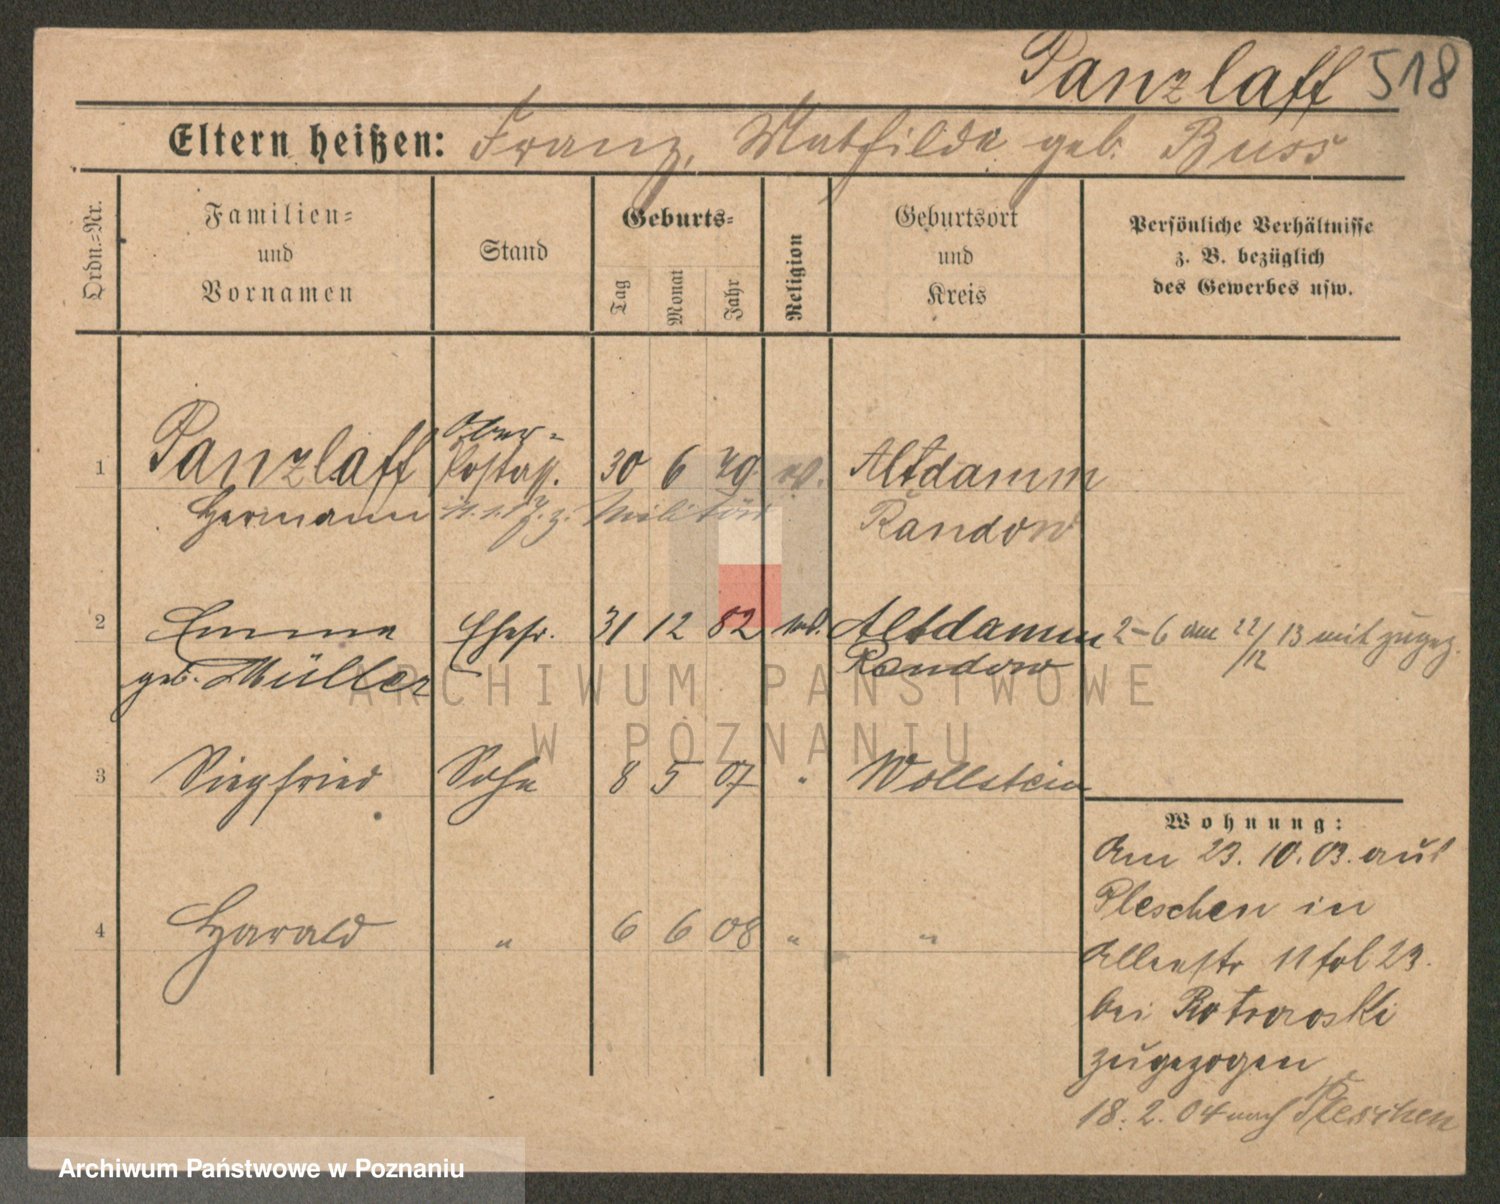 Panzlaff 518
Eltern heißen: Franz, Mathilde geb. Buss
Ordn.-Nr.
Familien-
und
Vornamen
Stand
Geburts-
Tag
Monat
Jahr
Religion
Geburtsort
und
Kreis
Persönliche Verhältnisse
z. B. bezüglich
des Gewerbes usw.
Ober-
1 Panzlaff Postass. 30 6 79 ev. Altdamm
Hermann z. Z. Militär Randow
2 Emma Ehefr. 31 12 82 ev. Altdamm 2-6 am 22/12 13 mit zugez.
geb. Müller Randow
3 Siegfried Sohn 8 5 07 " Wollstein
Wohnung:
Am 23. 10. 03. aus
Pleschen in
4 Harald " 6 6 08 " "
11 fol 23.
bei
zugezogen
18. 2. 04 nach Pleschen
ARCHIWUM PAŃSTWOWE
W POZNANIU
Archiwum Państwowe w Poznaniu